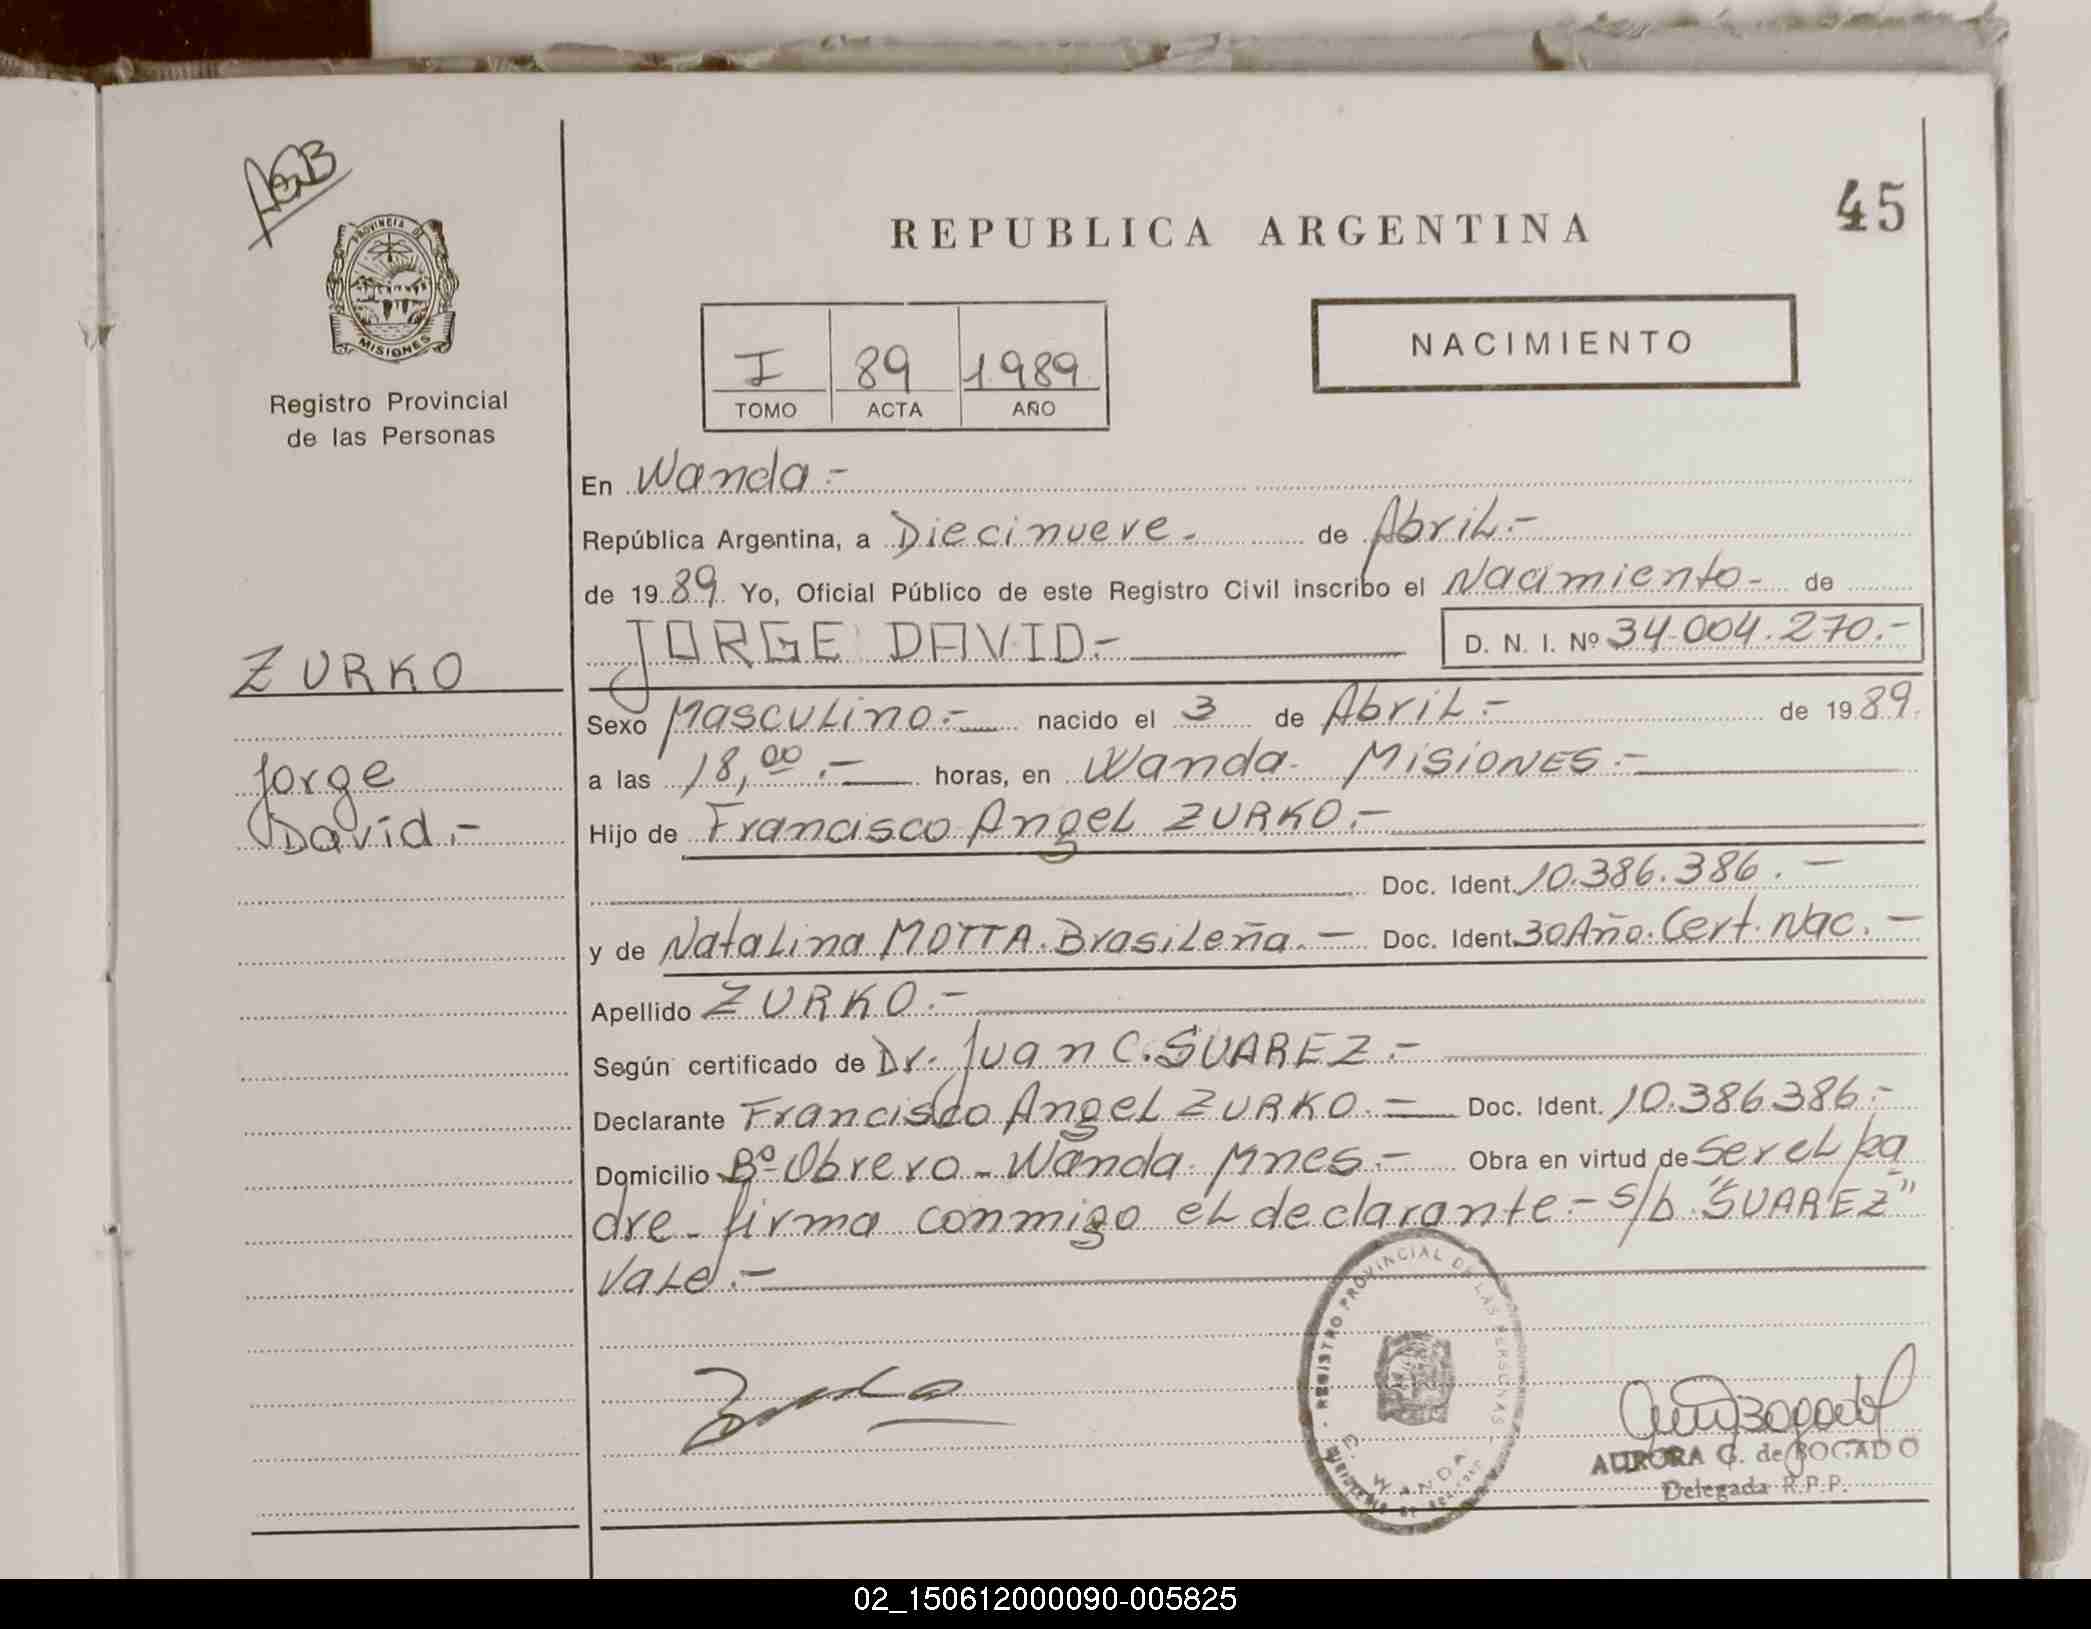 AGB
PROVINCIA DE
MISIONES
Registro Provincial
de las Personas
REPUBLICA ARGENTINA
45
I 89 1989
TOMO ACTA AÑO
NACIMIENTO
En Wanda.-
República Argentina, a Diecinueve.- de Abril.-
de 1989 Yo, Oficial Público de este Registro Civil inscribo el Nacimiento- de
JORGE DAVID.- D. N. I. Nº 34.004.270.-
ZURKO
Jorge
David.-
Sexo Masculino.- nacido el 3 de Abril.- de 1989.
a las 18,00.- horas, en Wanda- Misiones.-
Hijo de Francisco Angel ZURKO.-
Doc. Ident. 10.386.386.-
y de Natalina MOTTA.Brasileña.- Doc. Ident. 30 Año.Cert.Nac.-
Apellido ZURKO.-
Según certificado de Dr. Juan C. SUAREZ.-
Declarante Francisco Angel ZURKO.- Doc. Ident. 10.386386.-
Domicilio Bº Obrero- Wanda. Mnes.- Obra en virtud de ser el pa
dre- firma conmigo el declarante.- s/b "SUAREZ"
Vale.-
REGISTRO PROVINCIAL DE LAS PERSONAS
WANDA
AURORA G. de BOGADO
Delegada R.P.P.
02_150612000090-005825